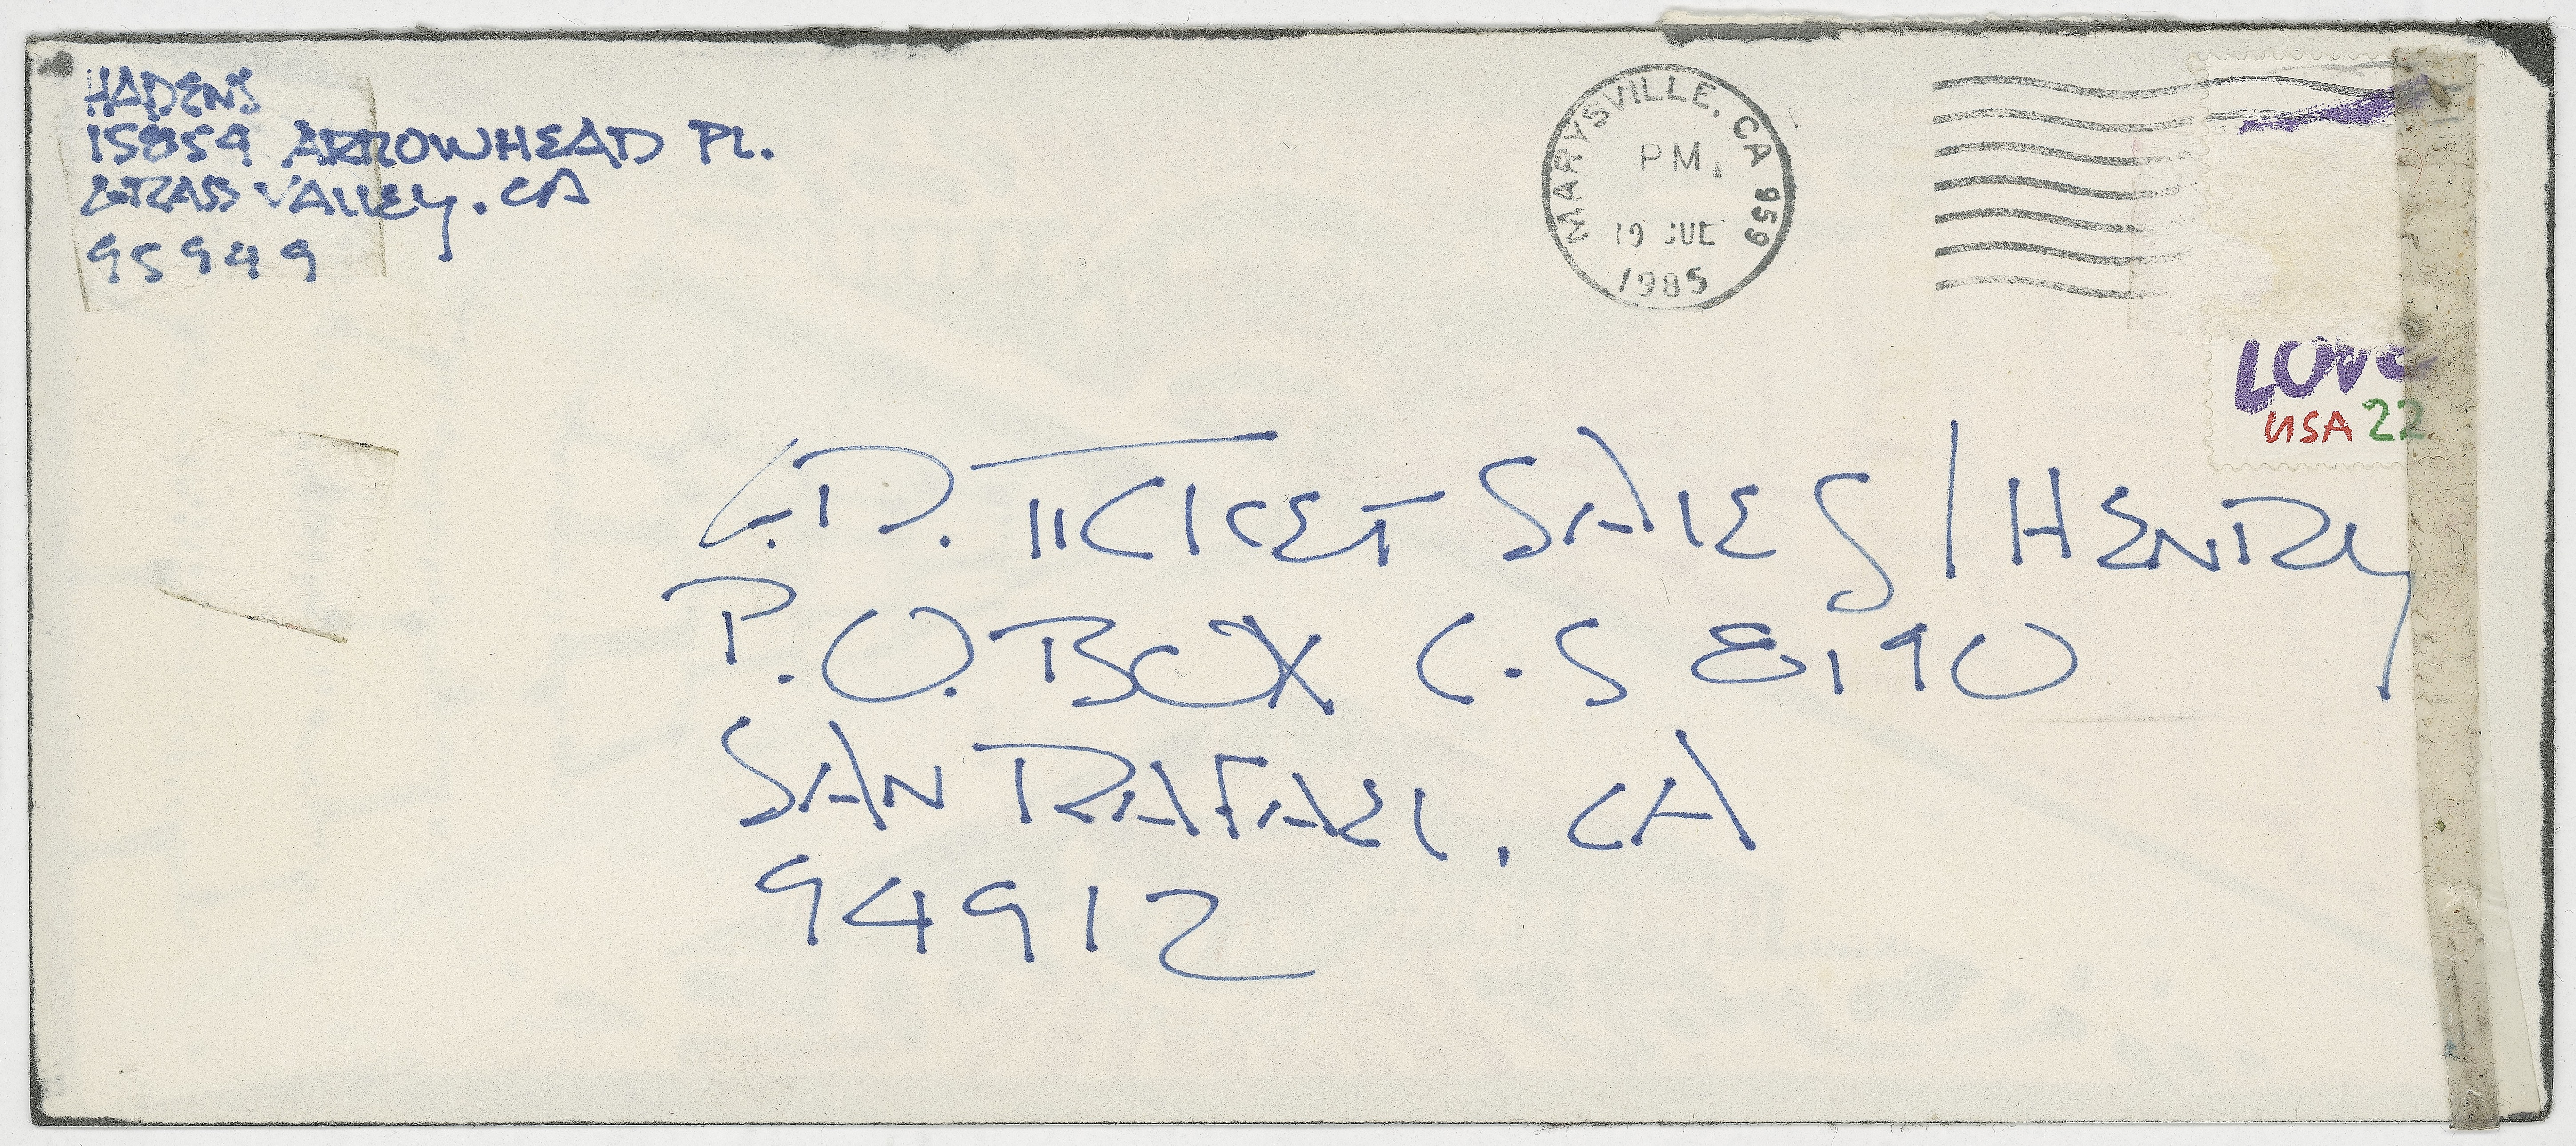 HADENS
15859 ARROWHEAD PL.
GRASS VALLEY, CA
95949
MARYSVILLE, CA 959
PM
19 JUL
1985
LOVE
USA 22
G.D. TICKET SALES / HENRY
P.O. BOX C.S 8190
SAN RAFAEL, CA
94912